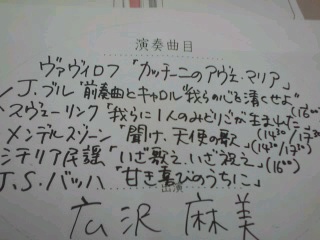 演奏曲目
ヴァヴィロフ「カッチーニのアヴェ・マリア」
J.ブル "前奏曲とキャロル"我らの心を清くせよ"
スヴェーリンク「我らに1人のみどりごが生まれた
メンデルスゾーン「聞け、天使の歌」
シチリア民謡「いざ歌え、いざ祝え」
J.S.バッハ「甘き喜びのうちに」
出演
広沢 麻美